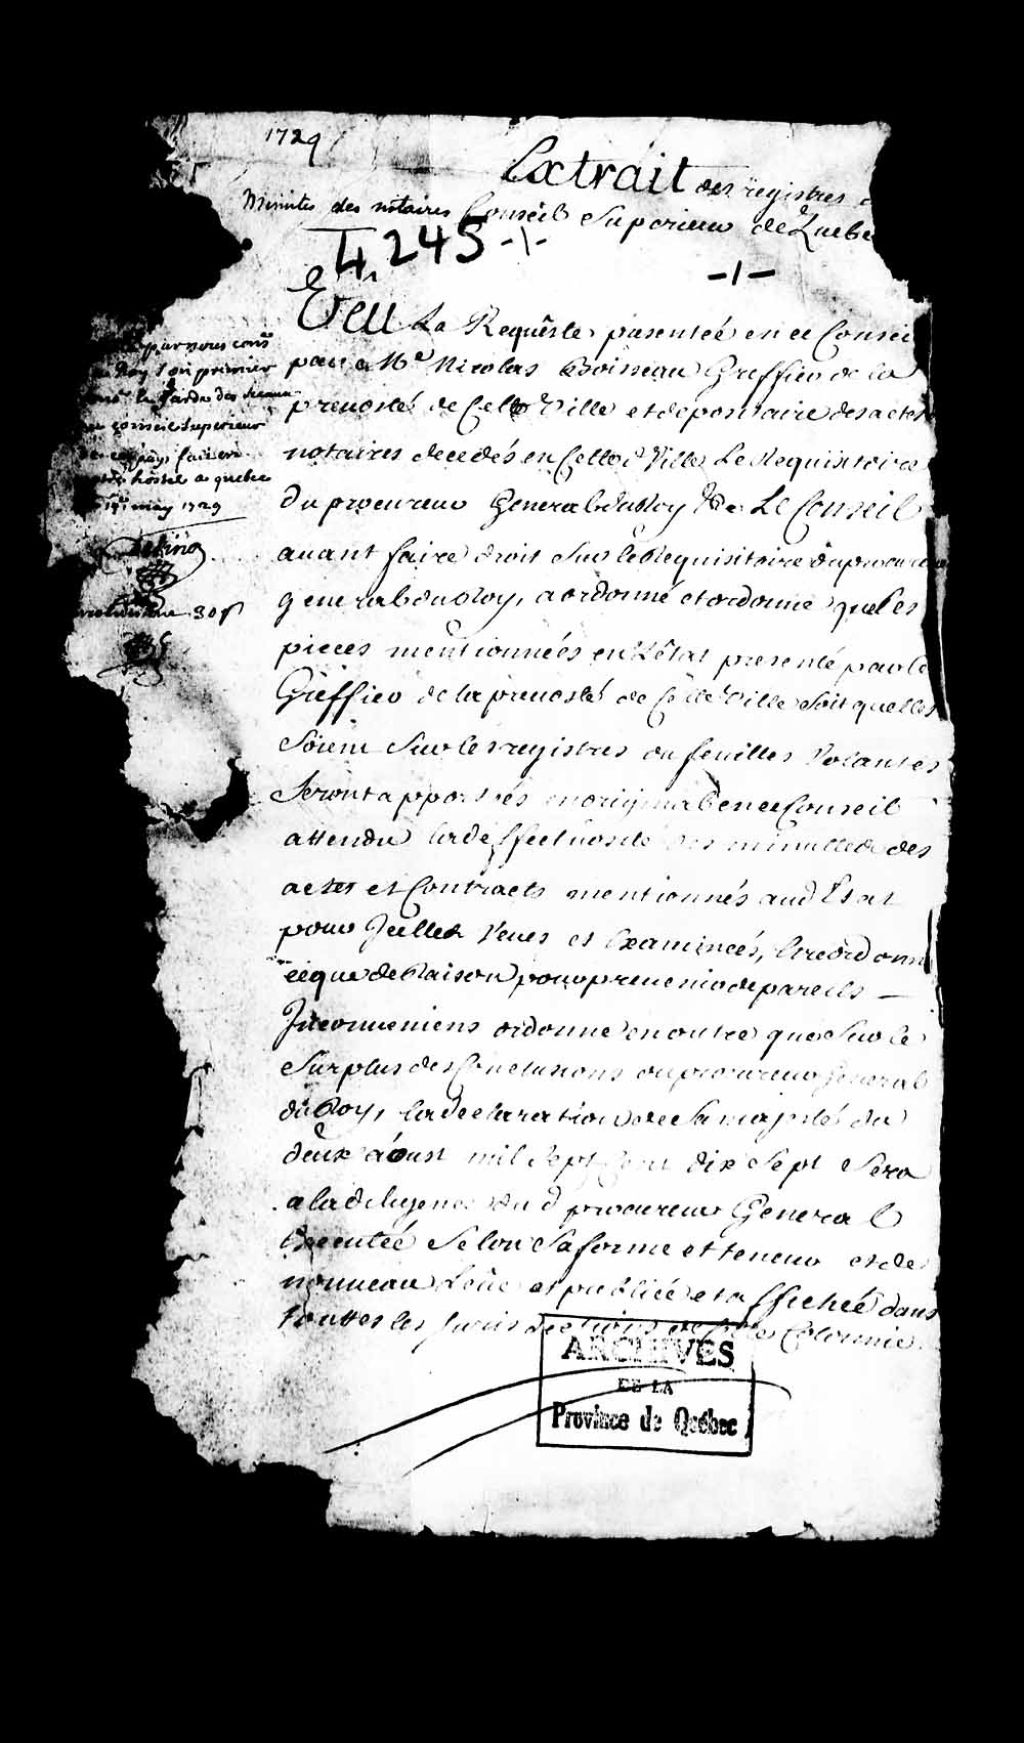 1729
Extrait des registres
Minutes des notaires
Conseil Superieur de Quebe
4, 245 -1-
-1-
Veu La Requeste presentée en ce Conseil
par Me Nicolas Boisseau Greffier de la
prevosté de Cette Ville et depositaire des actes
notaires decedés en Cette Ville Le Requisitoire
Du procureur General du Roy Le Conseil
avant faire droit sur le Requisitoire du procureur
general du Roy, a ordonné et ordonne que les
pieces mentionnées en l'État presenté par le
Greffier de la prevosté de Cette Ville soit quelles
soient sur les registres ou feuilles Volantes
seront apportés en original en ce Conseil
attendu la deffectuosité des minuttes des
actes et Contracts mentionnés aud Etat
pour Icelles Veues et Examinées, Etre ordonn
ce que de Raison pour prevenir de pareils —
Inconveniens ordonne en outre que sur le
surplus des Conclusions du procureur general
du Roy, la declaration de sa majesté du
deux aoust mil sept Cent dix sept sera
a la diligence du d procureur General
Executée selon sa forme et teneur et de
nouveau Leüe et publiée et affichée dans
touttes les Jurisdictions de Cette Colonnie.
par nous cons
Roy et premier
le Garde des Sceaux
conseil superieur
pays fait en
hostel a quebec
may 1729
30 s
ARCHIVES
DE LA
Province de Québec